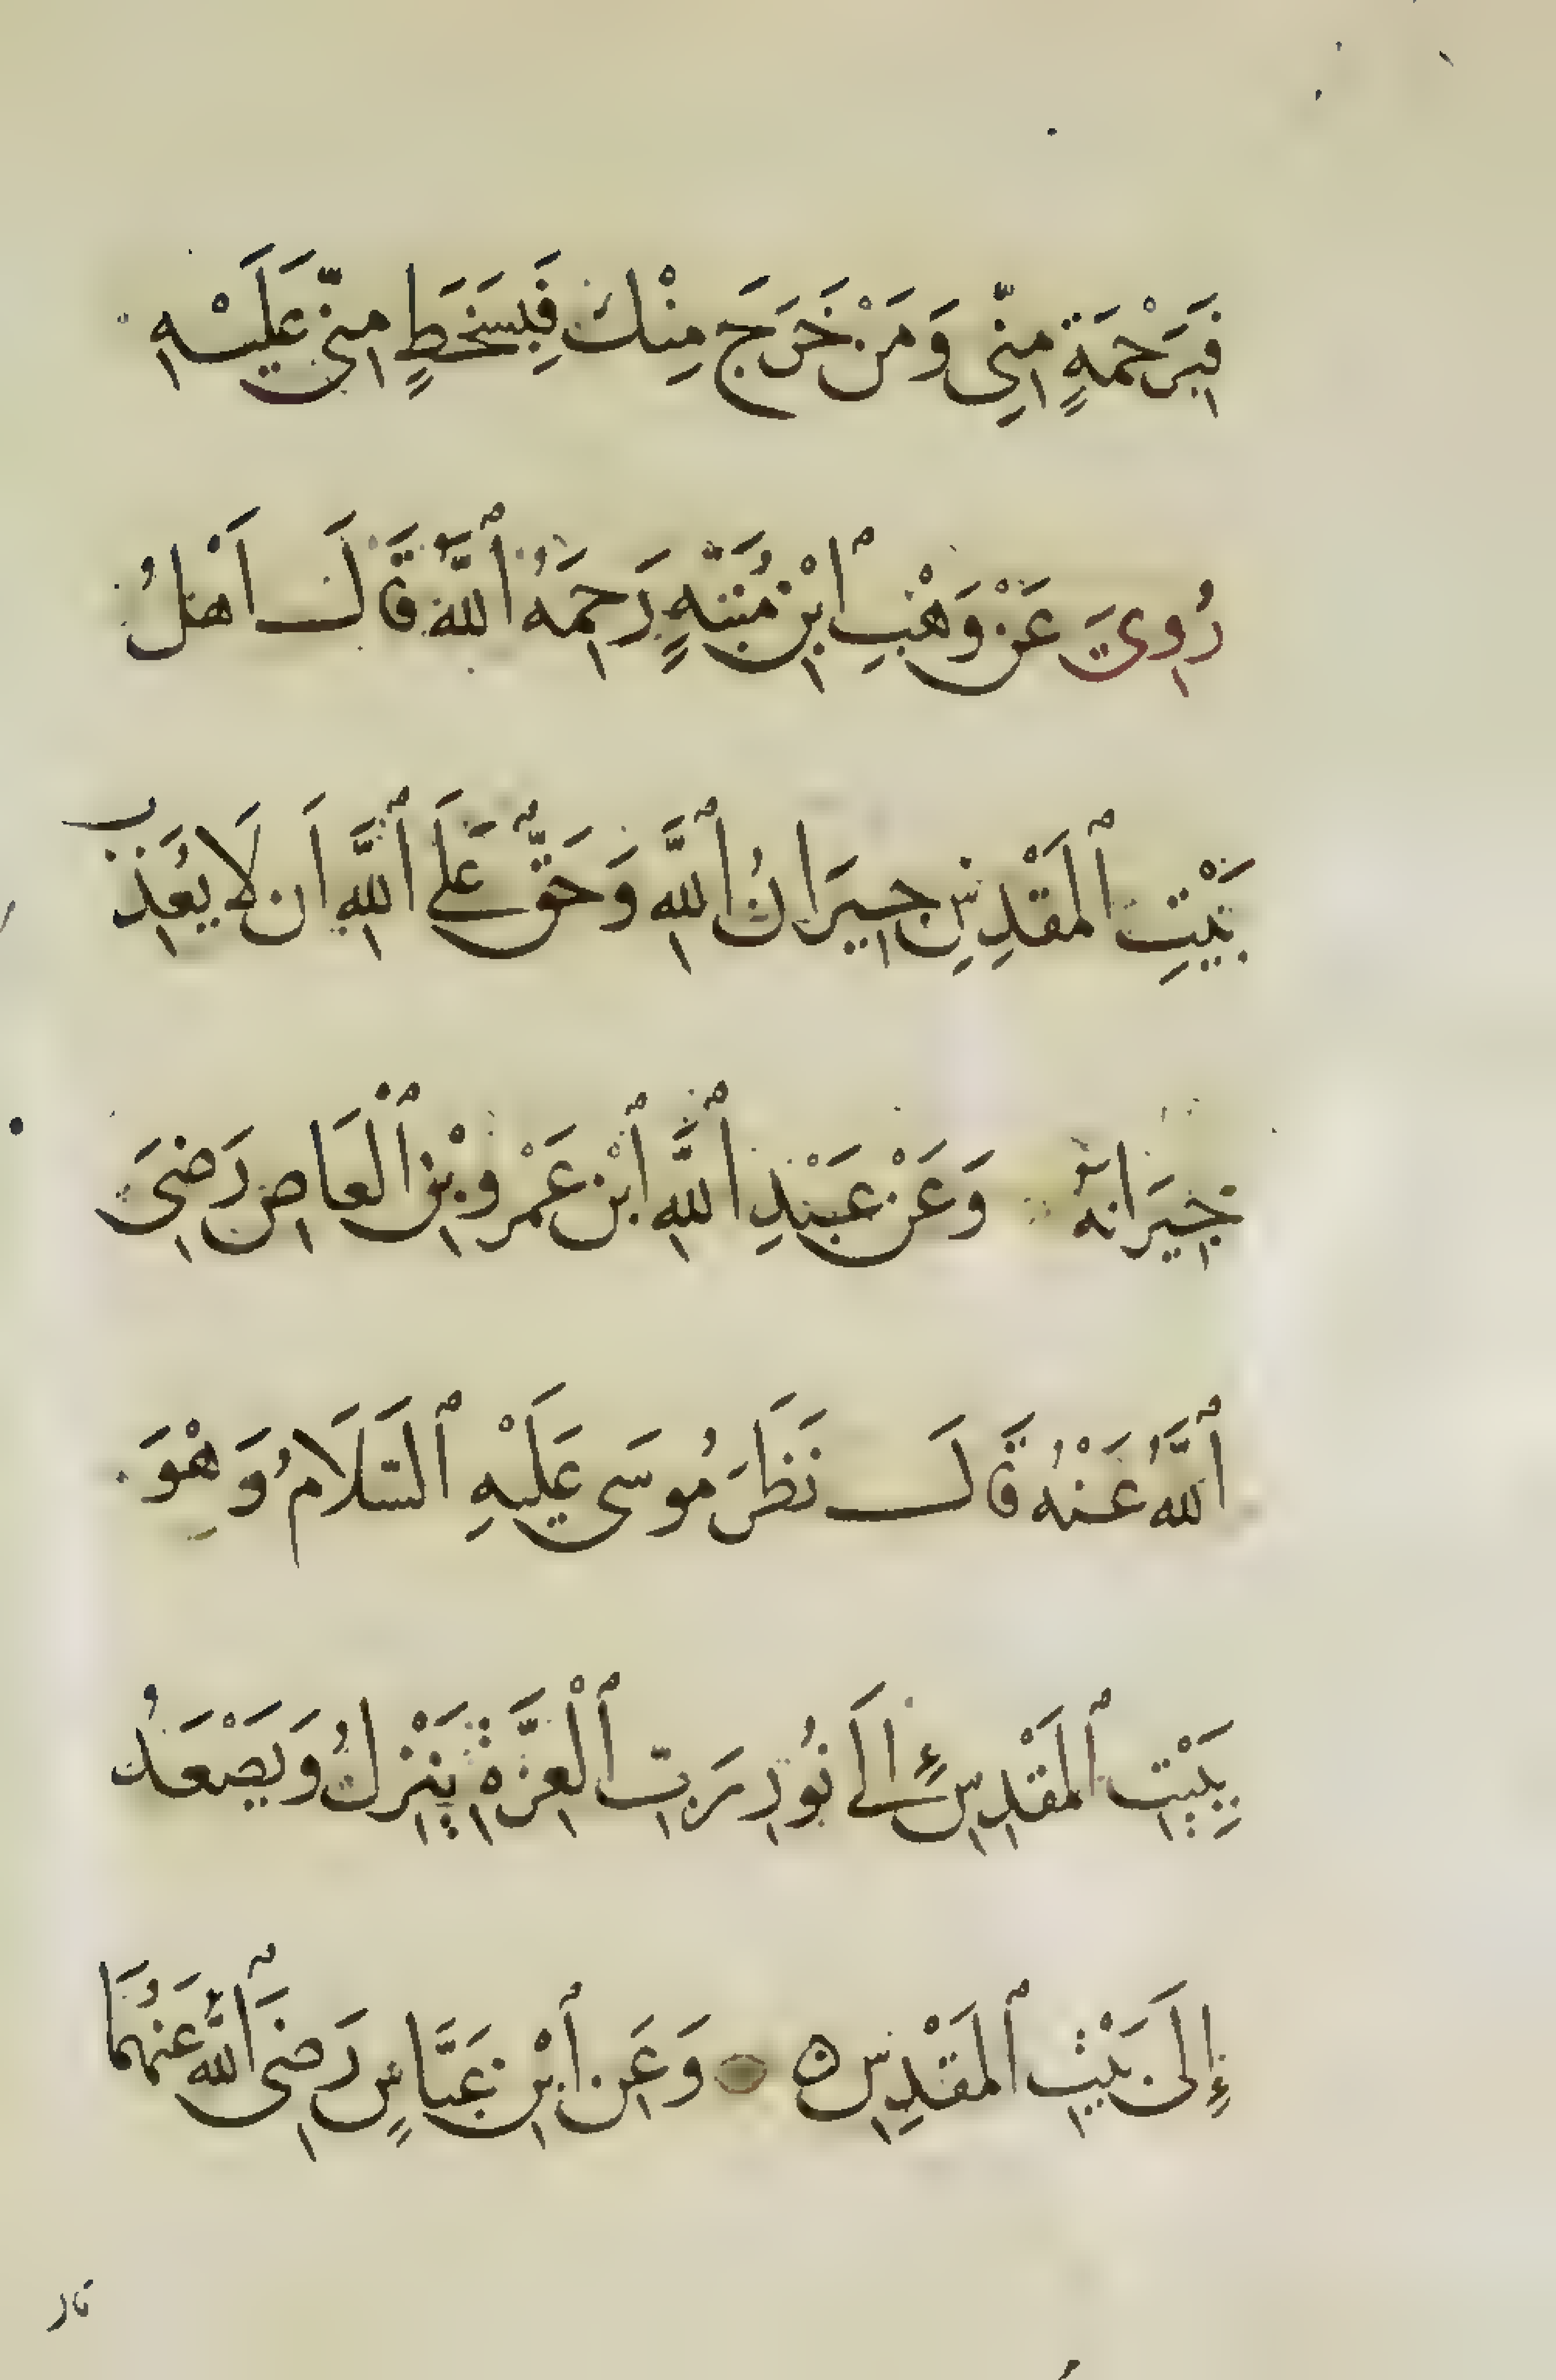 فَبِرَحْمَةٍ مِنِّي وَمَنْ خَرَجَ مِنْكَ فَبِسَخَطٍ مِنِّي عَلَيْهِ
رُوِيَ عَنْ وَهْبِ ابْنِ مُنَبِّهٍ رَحِمَهُ اللَّهُ قَالَ اَهْلُ
بَيْتِ الْمَقْدِسِ جِيرَانُ اللَّهِ وَحَقٌّ عَلَى اللَّهِ اَنْ لَا يُعَذِّبَ
جِيرَانَهُ وَعَنْ عَبْدِ اللَّهِ ابْنِ عَمْرِو بْنِ الْعَاصِ رَضِيَ
اللَّهُ عَنْهُ قَالَ نَظَرَ مُوسَى عَلَيْهِ السَّلَامُ وَهْوَ
بِبَيْتِ الْمَقْدِسِ إِلَى نُورِ رَبِّ الْعِزَّةِ يَنْزِلُ وَيَصْعَدُ
إِلَى بَيْتِ الْمَقْدِسِ ه وَعَنِ ابْنِ عَبَّاسٍ رَضِيَ اللَّهُ عَنْهُمَا
قال